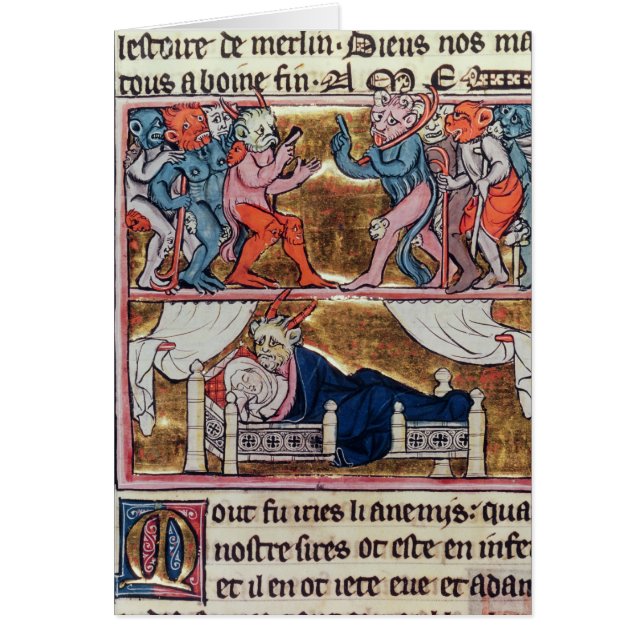 lestoire de merlin. Dieus nos ma
tous a boine fin. A M E
Mout fu iries li anemis: qua
nostre sires ot este en infe
et il en ot iete eue et adan